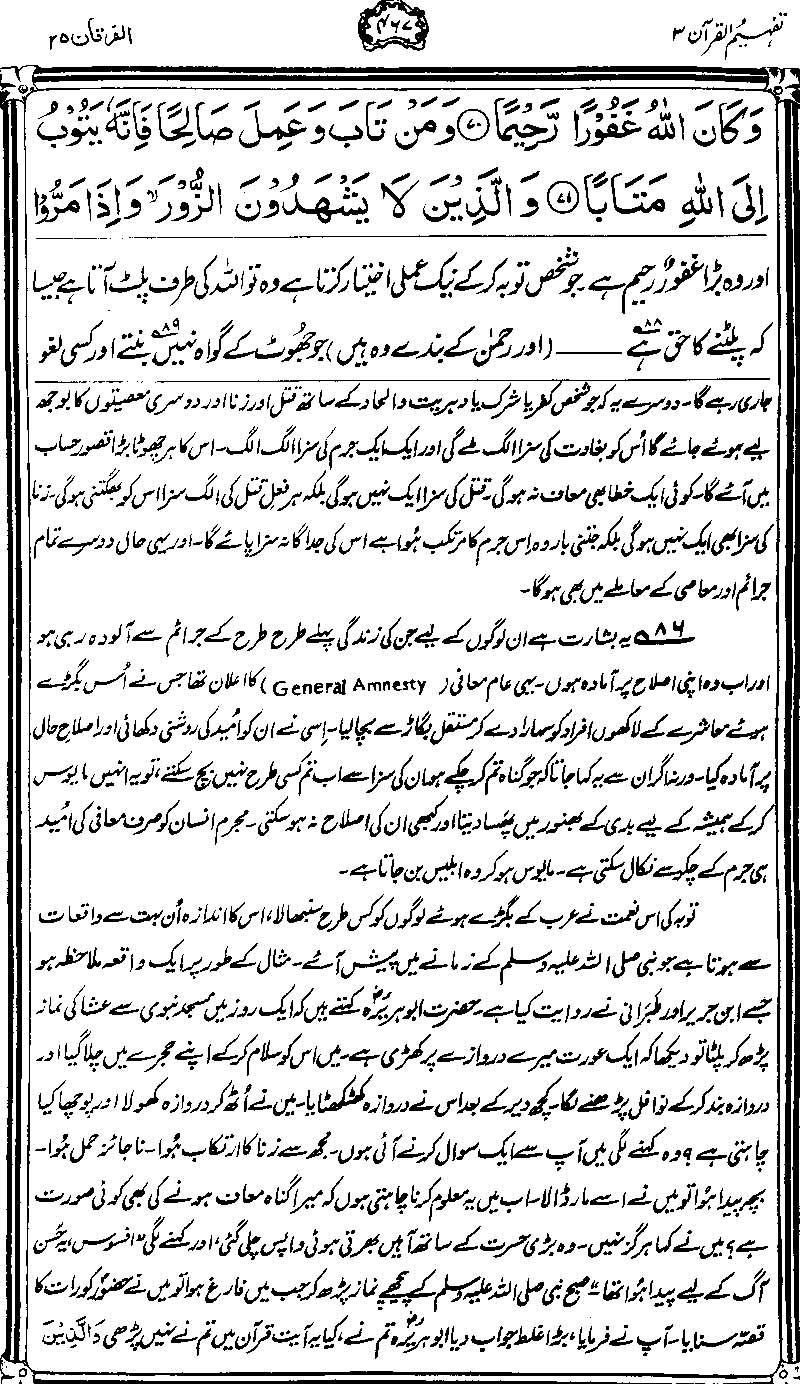 تفہیم القرآن ۳
۴۶۷
الفرقان ۲۵
وَكَانَ اللّٰهُ غَفُوْرًا رَّحِيْمًا ۝۷۰ وَمَنْ تَابَ وَعَمِلَ صَالِحًا فَاِنَّهٗ يَتُوْبُ
اِلَى اللّٰهِ مَتَابًا ۝۷۱ وَالَّذِيْنَ لَا يَشْهَدُوْنَ الزُّوْرَ ۙ وَاِذَا مَرُّوْا
اور وہ بڑا غفورٌ رحیم ہے جو شخص توبہ کر کے نیک عملی اختیار کرتا ہے وہ تو اللہ کی طرف پلٹ آتا ہے جیسا
کہ پلٹنے کا حق ہے ۸۸ ــــــ (اور رحمٰن کے بندے وہ ہیں) جو جھوٹ کے گواہ نہیں بنتے ۸۹ اور کسی لغو
جاری رہے گا۔ دوسرے یہ کہ جو شخص کفر یا شرک یا دہریت و الحاد کے ساتھ قتل اور زنا اور دوسری معصیتوں کا بوجھ
لیے ہوئے جائے گا اُس کو بغاوت کی سزا الگ ملے گی اور ایک ایک جرم کی سزا الگ الگ۔ اس کا ہر چھوٹا بڑا قصور حساب
میں آئے گا۔ کوئی ایک خطا بھی معاف نہ ہو گی۔ قتل کی سزا ایک نہیں ہو گی بلکہ ہر فعلِ قتل کی الگ سزا اس کو بھگتنی ہو گی۔ زنا
کی سزا بھی ایک نہیں ہو گی بلکہ جتنی بار وہ اِس جرم کا مرتکب ہُوا ہے اس کی جداگانہ سزا پائے گا۔ اور یہی حال دوسرے تمام
جرائم اور معاصی کے معاملے میں بھی ہو گا۔
۸۶ یہ بشارت ہے ان لوگوں کے لیے جن کی زندگی پہلے طرح طرح کے جرائم سے آلودہ رہی ہو
اور اب وہ اپنی اصلاح پر آمادہ ہوں۔ یہی عام معافی (General Amnesty) کا اعلان تھا جس نے اُس بگڑے
ہوئے معاشرے کے لاکھوں افراد کو سہارا دے کر مستقل بگاڑ سے بچا لیا۔ اِسی نے ان کو اُمید کی روشنی دکھائی اور اصلاحِ حال
پر آمادہ کیا۔ ورنہ اگر ان سے یہ کہا جاتا کہ جو گناہ تم کر چکے ہو ان کی سزا سے اب تم کسی طرح نہیں بچ سکتے، تو یہ انہیں مایوس
کر کے ہمیشہ کے لیے بدی کے بھنور میں پھنسا دیتا اور کبھی ان کی اصلاح نہ ہو سکتی۔ مجرم انسان کو صرف معافی کی اُمید
ہی جرم کے چکر سے نکال سکتی ہے۔ مایوس ہو کر وہ ابلیس بن جاتا ہے۔
توبہ کی اس نعمت نے عرب کے بگڑے ہوئے لوگوں کو کس طرح سنبھالا، اس کا اندازہ اُن بہت سے واقعات
سے ہوتا ہے جو نبی صلی اللہ علیہ وسلم کے زمانے میں پیش آئے۔ مثال کے طور پر ایک واقعہ ملاحظہ ہو
جسے ابن جریر اور طبرانی نے روایت کیا ہے۔ حضرت ابوہریرہؓ کہتے ہیں کہ ایک روز میں مسجد نبوی سے عشا کی نماز
پڑھ کر پلٹا تو دیکھا کہ ایک عورت میرے دروازے پر کھڑی ہے۔ میں اس کو سلام کر کے اپنے حجرے میں چلا گیا اور
دروازہ بند کر کے نوافل پڑھنے لگا۔ کچھ دیر کے بعد اس نے دروازہ کھٹکھٹایا۔ میں نے اُٹھ کر دروازہ کھولا اور پوچھا کیا
چاہتی ہے؟ وہ کہنے لگی میں آپ سے ایک سوال کرنے آئی ہوں۔ مجھ سے زنا کا ارتکاب ہُوا۔ ناجائز حمل ہُوا۔
بچہ پیدا ہُوا تو میں نے اسے مار ڈالا۔ اب میں یہ معلوم کرنا چاہتی ہوں کہ میرا گناہ معاف ہونے کی بھی کوئی صورت
ہے؟ میں نے کہا ہرگز نہیں۔ وہ بڑی حسرت کے ساتھ آہیں بھرتی ہوئی واپس چلی گئی، اور کہنے لگی "افسوس، یہ حُسن
آگ کے لیے پیدا ہُوا تھا"۔ صبح نبی صلی اللہ علیہ وسلم کے پیچھے نماز پڑھ کر جب میں فارغ ہوا تو میں نے حضورؐ کو رات کا
قصہ سنایا۔ آپ نے فرمایا، بڑا غلط جواب دیا ابوہریرہؓ تم نے، کیا یہ آیت قرآن میں تم نے نہیں پڑھی وَالَّذِيْنَ